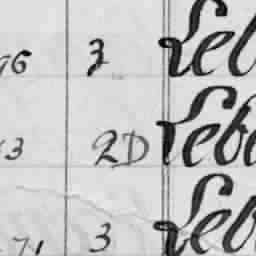 96 3 Leb
3 2D Lebe
71 3 Leb